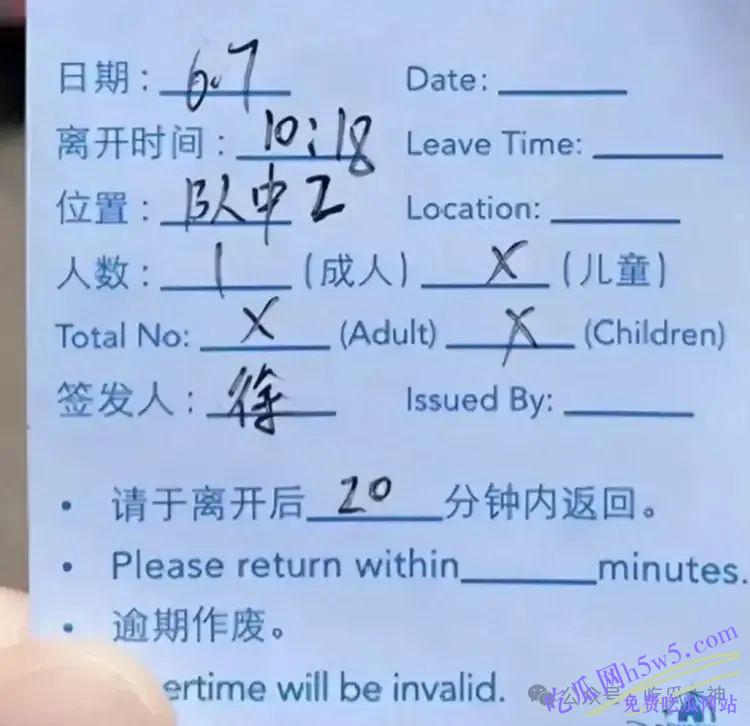 日期：6.7 Date:
离开时间：10:18 Leave Time:
位置：队中2 Location:
人数：1（成人）X（儿童）
Total No: X (Adult) X (Children)
签发人：徐 Issued By:
• 请于离开后20分钟内返回。
• Please return within minutes.
• 逾期作废。
ertime will be invalid.
公众号·吃瓜大神
吃瓜网h5w5.com
免费吃瓜网站